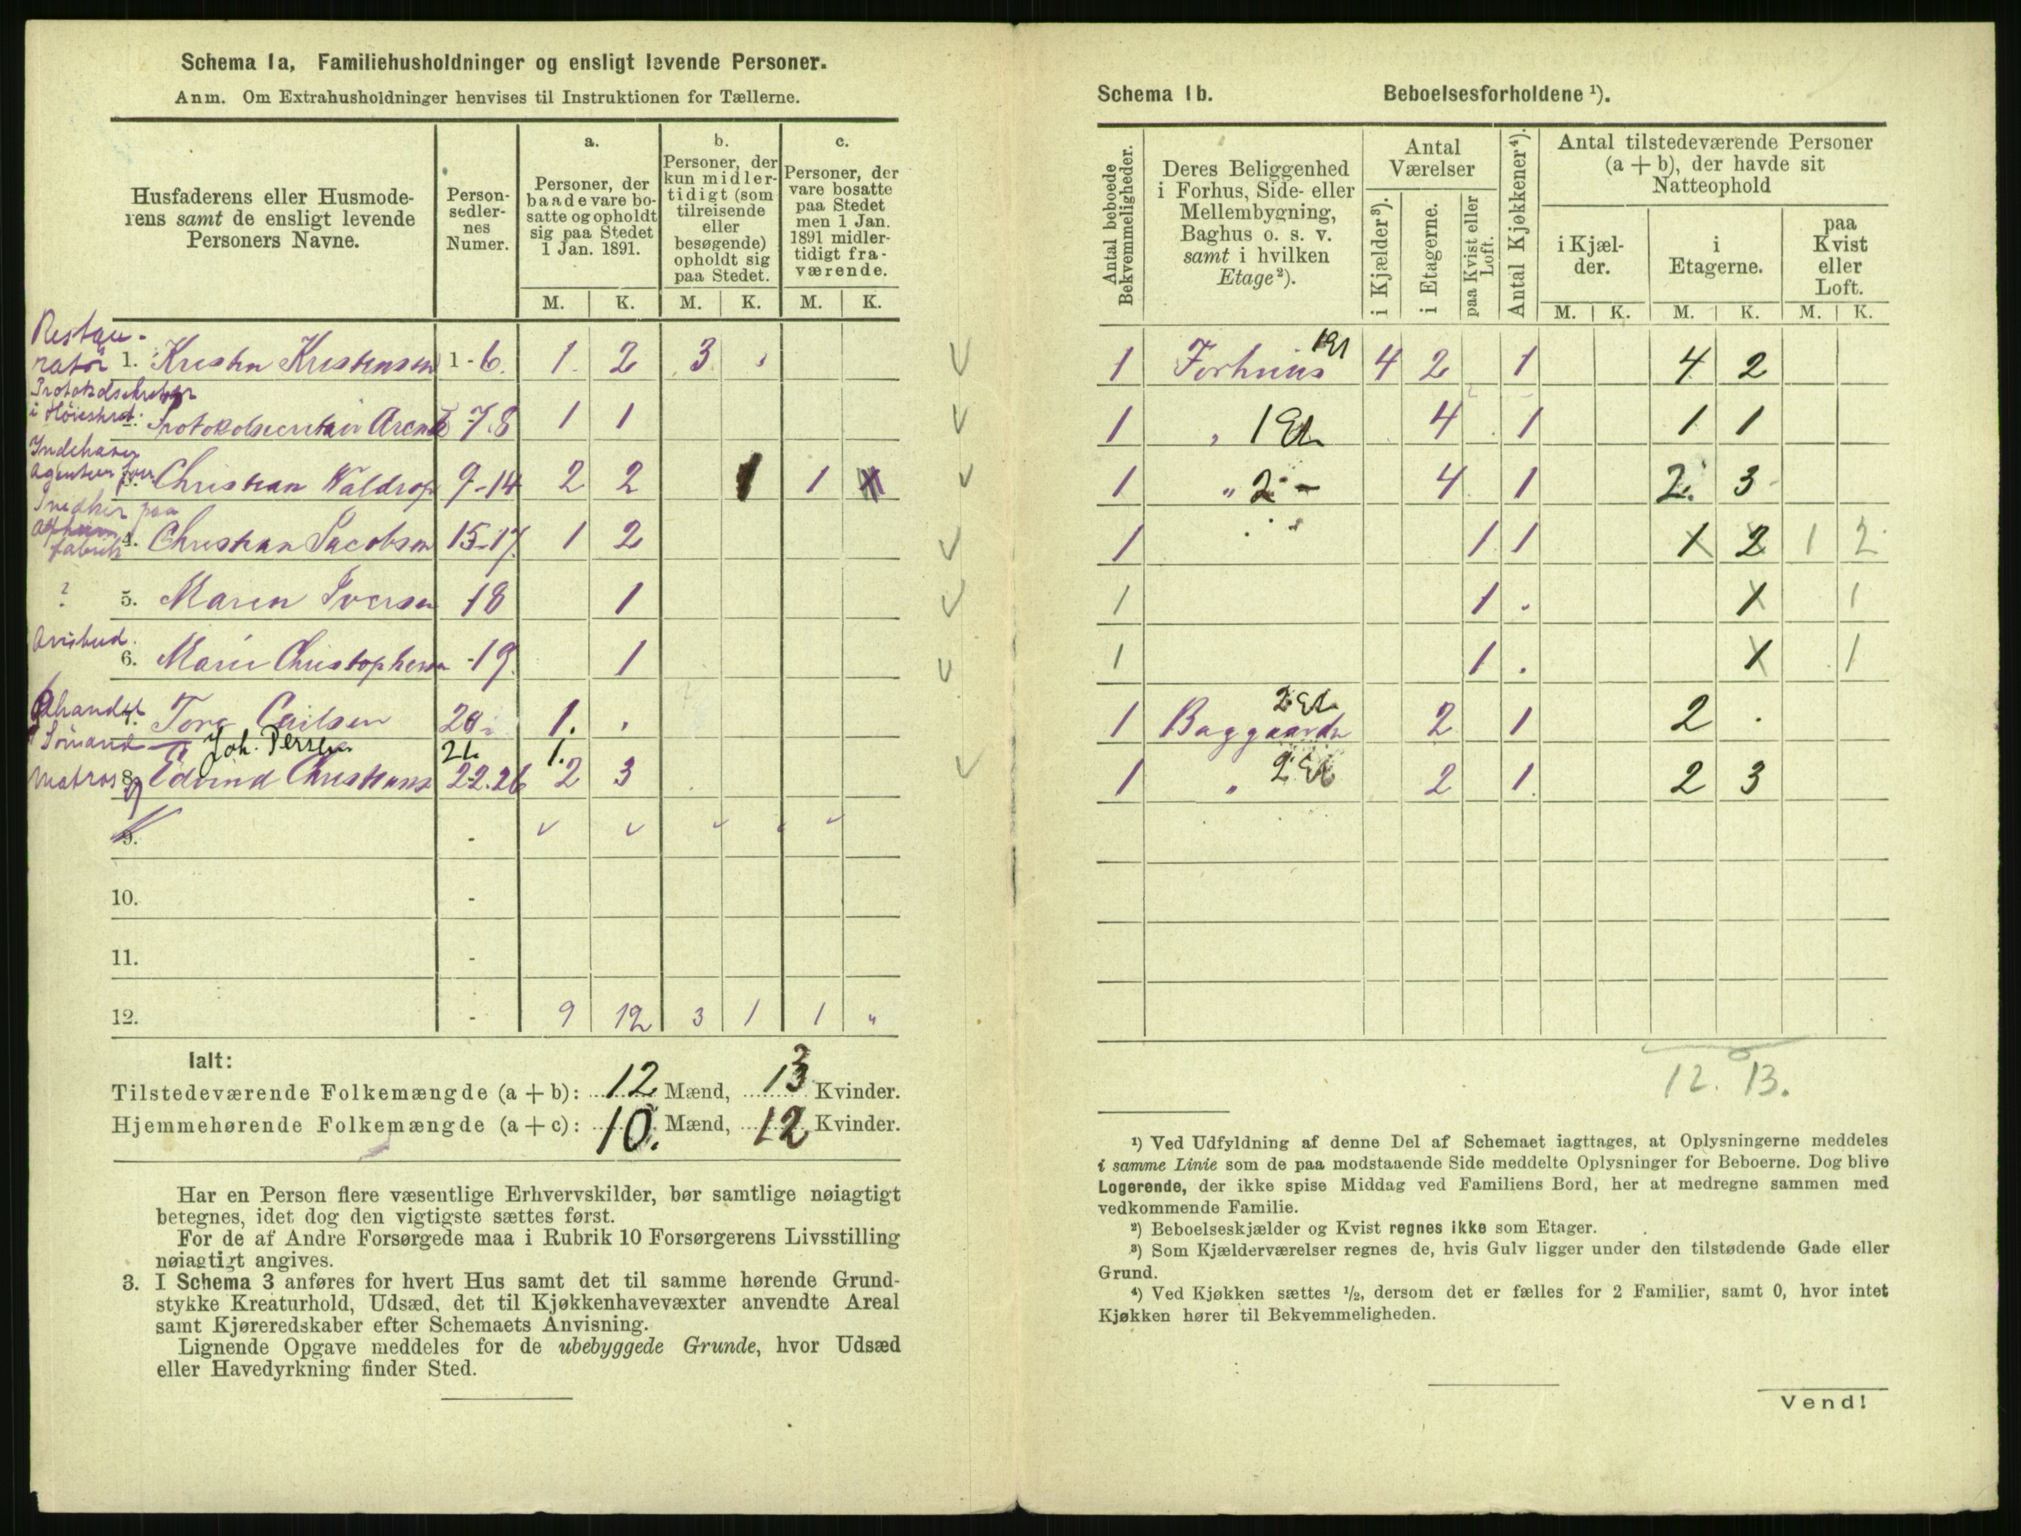 Schema 1a, Familiehusholdninger og ensligt levende Personer.
Anm. Om Extrahusholdninger henvises til Instruktionen for Tællerne.
Husfaderens eller Husmode-
rens samt de ensligt levende
Personers Navne.
Person-
sedler-
nes
Numer.
a.
Personer, der
baade vare bo-
satte og opholdt
sig paa Stedet
1 Jan. 1891.
b.
Personer, der
kun midler-
tidigt (som
tilreisende
eller
besøgende)
opholdt sig
paa Stedet.
c.
Personer, der
vare bosatte
paa Stedet
men 1 Jan.
1891 midler-
tidigt fra-
værende.
M. K. M. K. M. K.
Restau-
ratør 1. Kristen Kristensen 1-6. 1. 2 3
Protokolsekretær
i Høiesteret. Protokolsecretair 7.8 1 1
Indehaver
Agentur 3. Christian Waldrop 9-14 2 2 1 1
paa
fabrik 4. Christian Jacobsen 15-17. 1 2
? 5. Maren Iversen -18 1
Avisbud. 6. Marie Christophersen -19. 1
7. 20. 1.
Sømand Joh. 21. 1.
Matros 8. Edvind Christians 22.26 2 3
9. -
10. -
11. -
12. - 9 12 3 1 1 "
Ialt:
Tilstedeværende Folkemængde (a + b): 12 Mænd, 13 Kvinder.
Hjemmehørende Folkemængde (a + c): 10. Mænd, 12 Kvinder.
Har en Person flere væsentlige Erhvervskilder, bør samtlige nøiagtigt
betegnes, idet dog den vigtigste sættes først.
For de af Andre Forsørgede maa i Rubrik 10 Forsørgerens Livsstilling
nøiagtigt angives.
3. I Schema 3 anføres for hvert Hus samt det til samme hørende Grund-
stykke Kreaturhold, Udsæd, det til Kjøkkenhavevæxter anvendte Areal
samt Kjøreredskaber efter Schemaets Anvisning.
Lignende Opgave meddeles for de ubebyggede Grunde, hvor Udsæd
eller Havedyrkning finder Sted.
Schema 1b. Beboelsesforholdene ¹).
Antal beboede
Bekvemmeligheder.
Deres Beliggenhed
i Forhus, Side- eller
Mellembygning,
Baghus o. s. v.
samt i hvilken
Etage²).
Antal
Værelser
i Kjælder³).
i Etagerne.
paa Kvist eller
Loft.
Antal Kjøkkener⁴).
Antal tilstedeværende Personer
(a + b), der havde sit
Natteophold
i Kjæl-
der.
i
Etagerne.
paa
Kvist
eller
Loft.
M. K. M. K. M. K.
1 Forhuus 1 Et 4 2 1 4 2
1 " 1 Et 4 1 1 1
1 " 2 - 4 1 2. 3
1 " 1 1 1 2 1 2
1 1 . 1 1
1 1 . 1 1
1 Baggaarde 2 Et 2 1 2 .
1 " 2 Et 2 1. 2 3
12. 13.
¹) Ved Udfyldning af denne Del af Schemaet iagttages, at Oplysningerne meddeles
i samme Linie som de paa modstaaende Side meddelte Oplysninger for Beboerne. Dog blive
Logerende, der ikke spise Middag ved Familiens Bord, her at medregne sammen med
vedkommende Familie.
²) Beboelseskjælder og Kvist regnes ikke som Etager.
³) Som Kjælderværelser regnes de, hvis Gulv ligger under den tilstødende Gade eller
Grund.
⁴) Ved Kjøkken sættes ½, dersom det er fælles for 2 Familier, samt 0, hvor intet
Kjøkken hører til Bekvemmeligheden.
Vend!